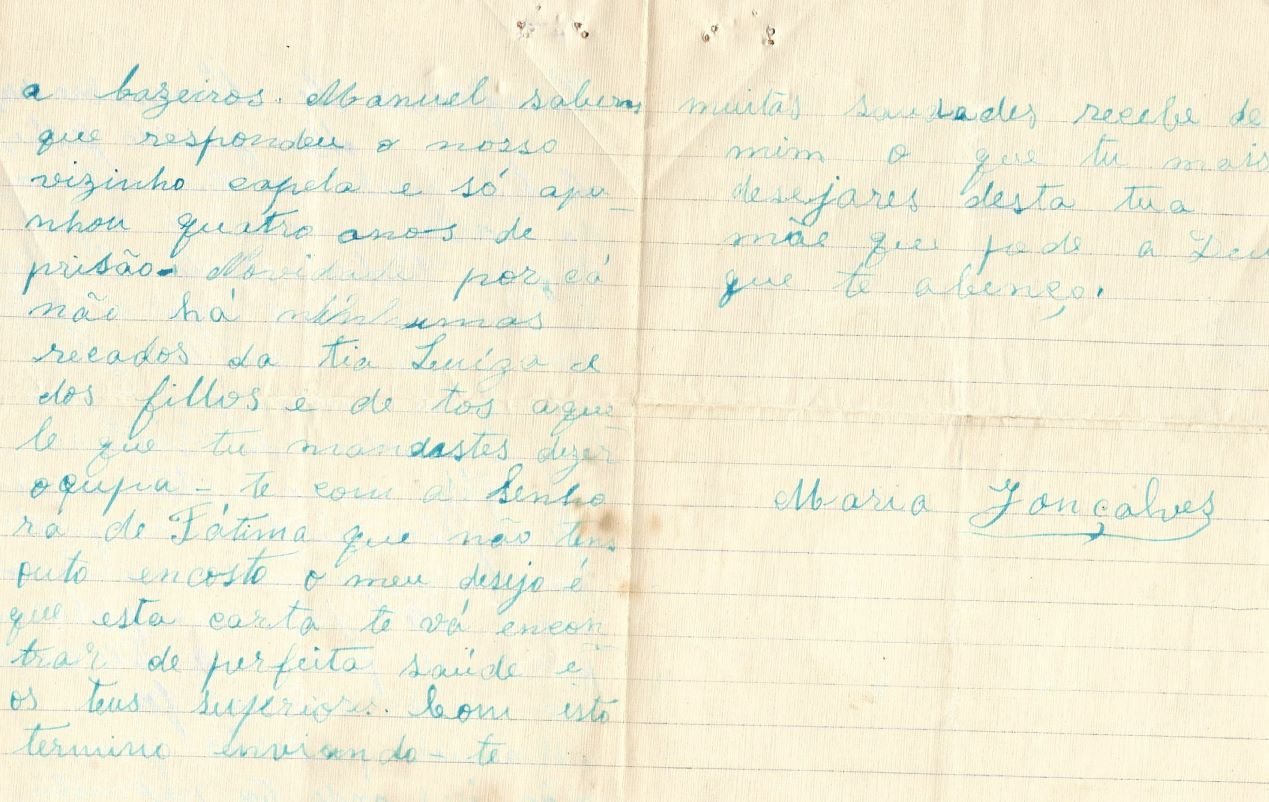 a bazeiros. Manuel sabera
que respondeu o nosso
vizinho capela e só apu_
nhou quatro anos de
prisão. Novidade por cá
não há ninhumas
recados da tia Luíza e
dos fillos e de tos aque_
le que tu mandastes dizer
oqupa-te com a Senho
ra de Fátima que não tens
outo encosto o meu desejo é
que esta carta te vá encon_
trar de perfeita saúde e
os teus superiores. Com isto
termino enviando-te
muitas saudades recebe de
mim o que tu mais
desejares desta tua
mãe que pede a Deu
que te abençoi.
Maria Gonçalves